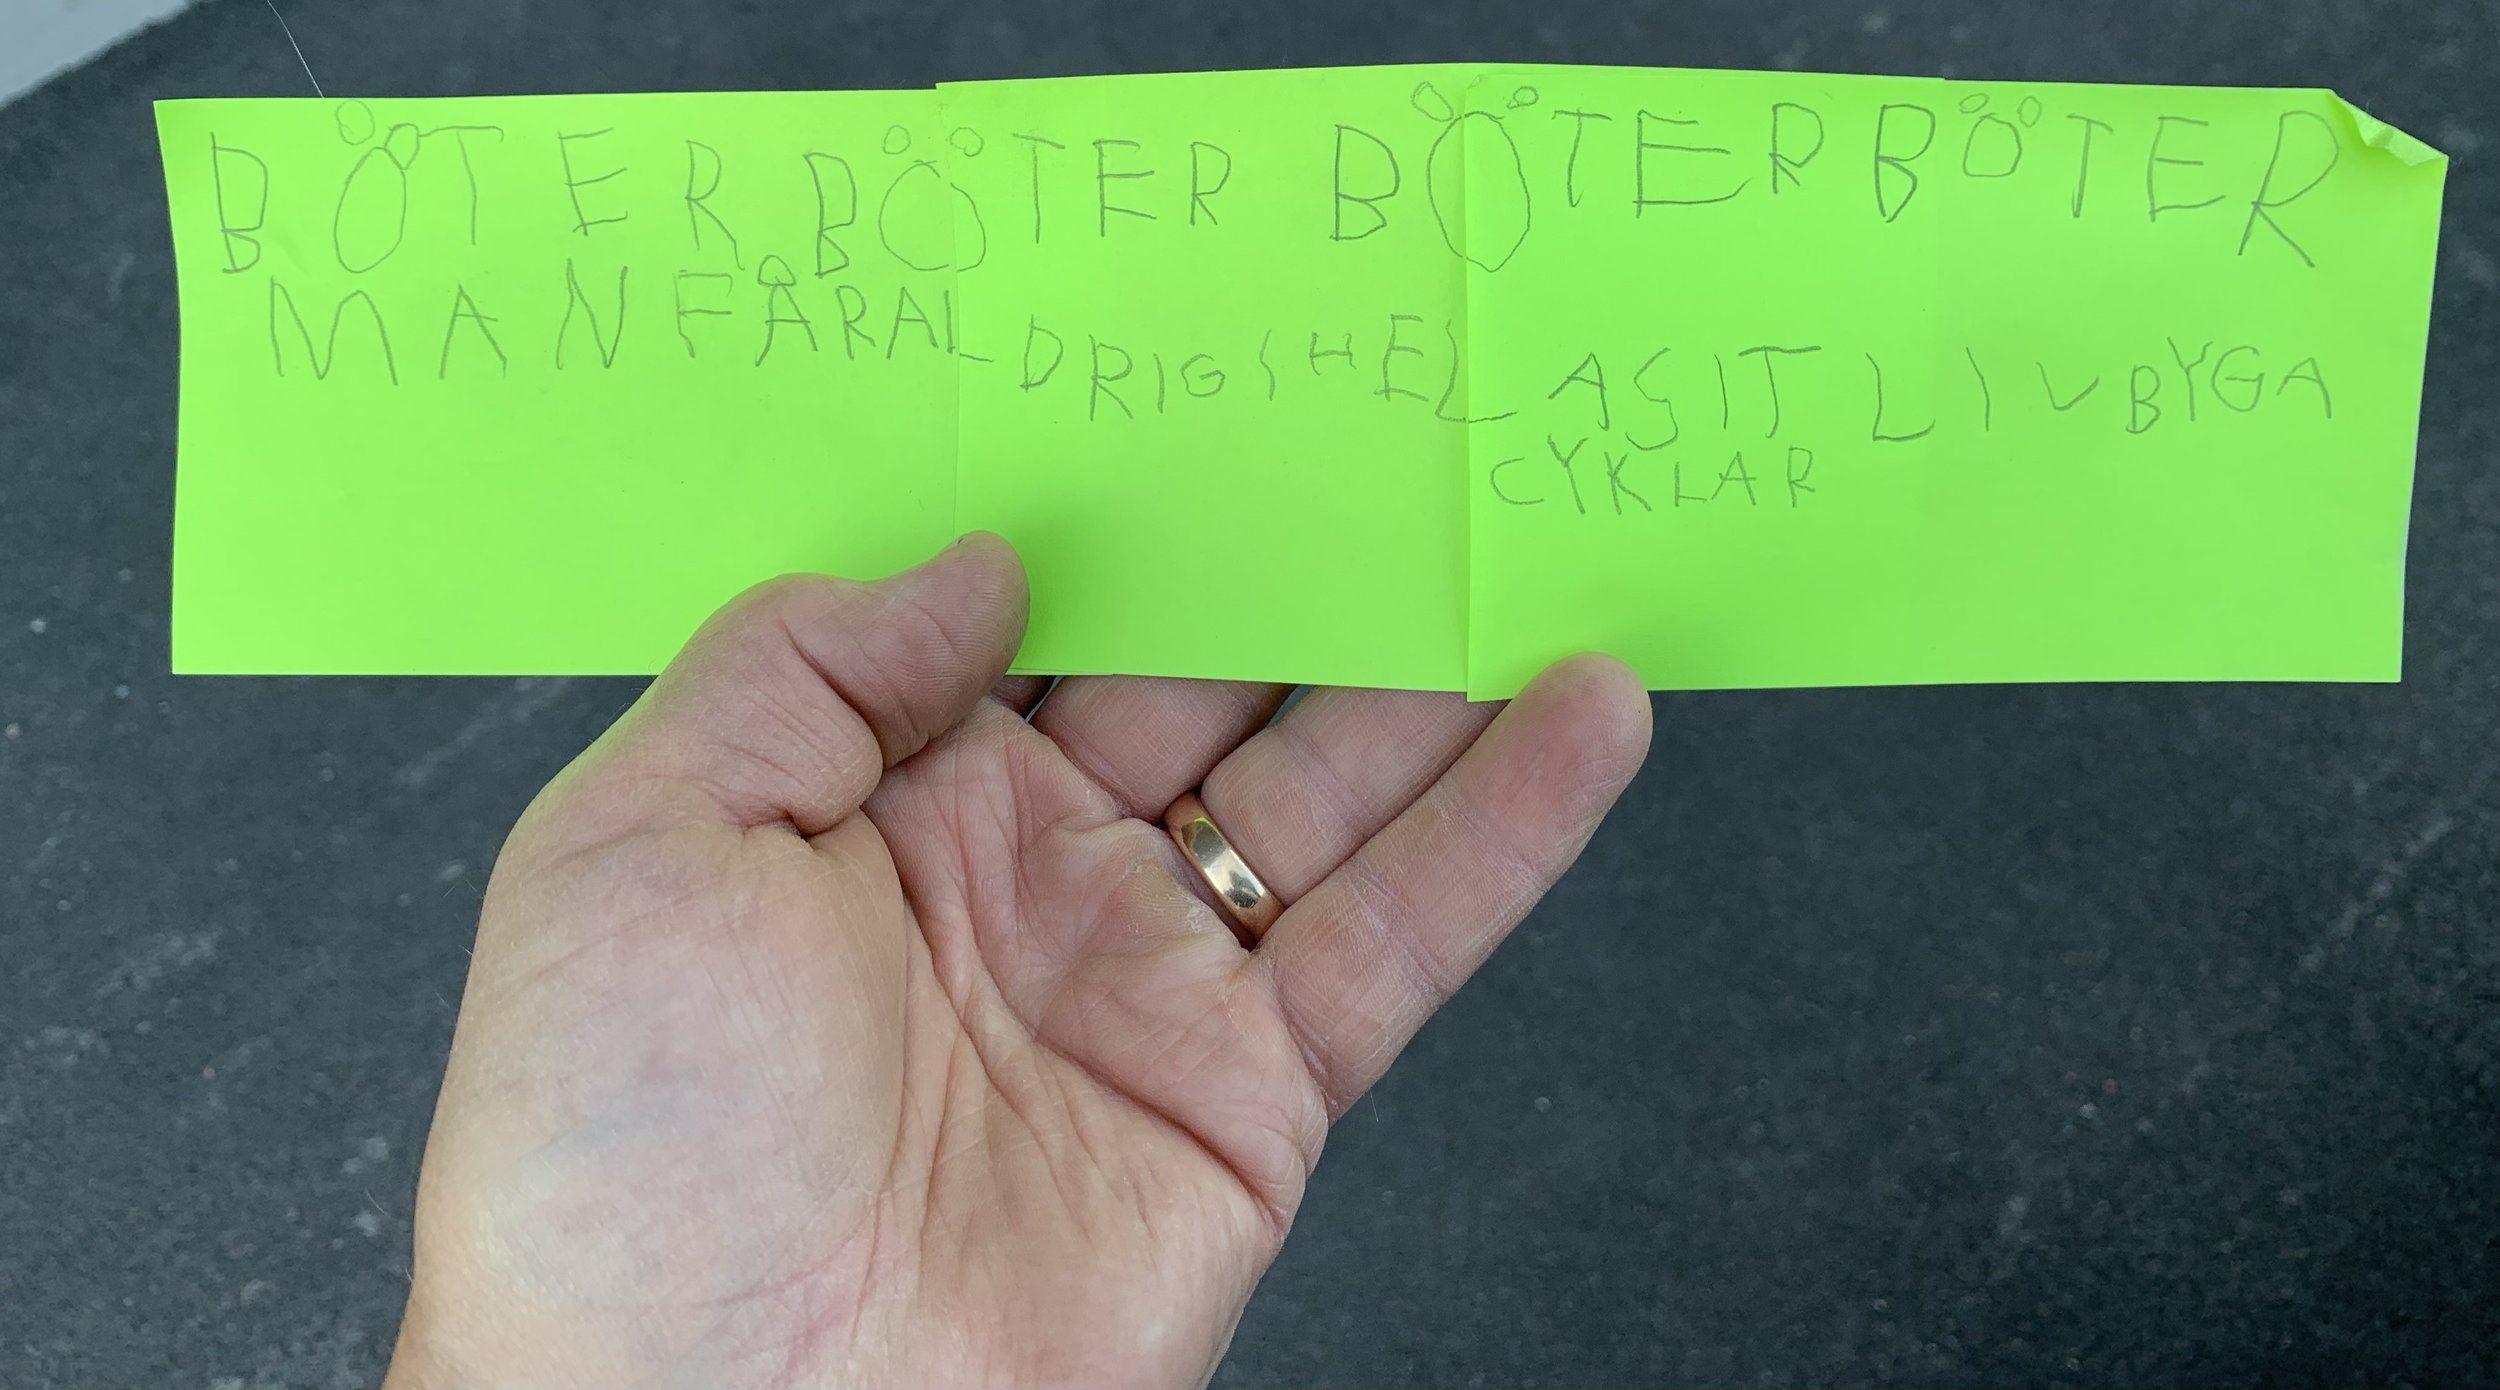 BÖTER BÖTER BÖTER BÖTER
MAN FÅR ALDRIG I HELA SIT LIV BYGA
CYKLAR